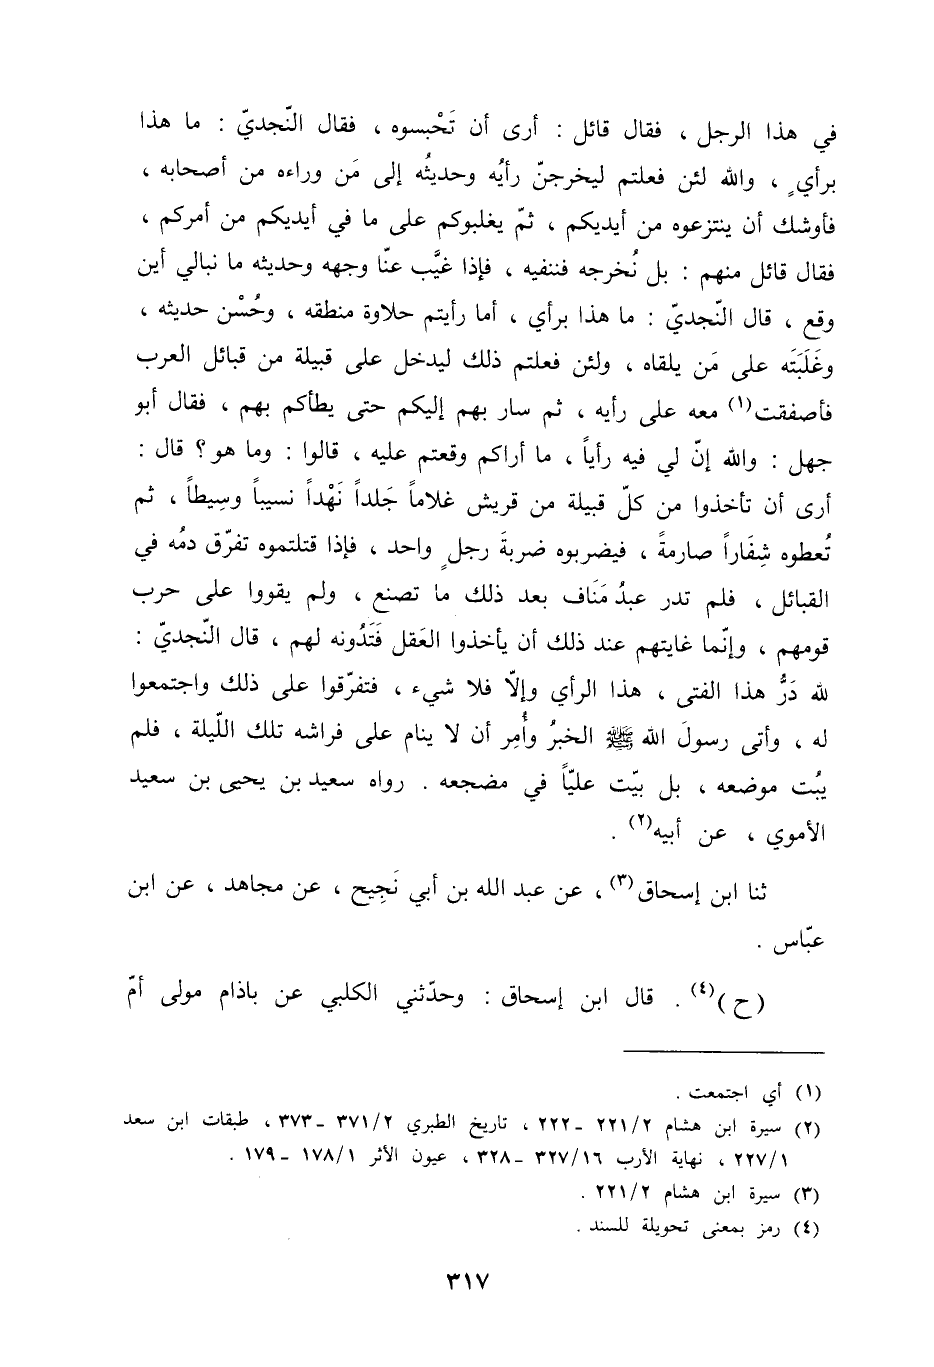 في هذا الرجل ، فقال قائل : أرى أن تَحْبسوه ، فقال النّجديّ : ما هذا
برأيٍ ، والله لئن فعلتم ليخرجنّ رأيُه وحديثُه إلى مَن وراءه من أصحابه ،
فأوشك أن ينتزعوه من أيديكم ، ثمّ يغلبوكم على ما في أيديكم من أمركم ،
فقال قائل منهم : بل نُخرجه فننفيه ، فإذا غيَّب عنّا وجهه وحديثه ما نبالي أين
وقع ، قال النّجديّ : ما هذا برأي ، أما رأيتم حلاوة منطقه ، وحُسْن حديثه ،
وغَلَبَتَه على مَن يلقاه ، ولئن فعلتم ذلك ليدخل على قبيلة من قبائل العرب
فأصفقت(١) معه على رأيه ، ثم سار بهم إليكم حتى يطأكم بهم ، فقال أبو
جهل : والله إنّ لي فيه رأياً ، ما أراكم وقعتم عليه ، قالوا : وما هو ؟ قال :
أرى أن تأخذوا من كلّ قبيلة من قريش غلاماً جَلداً نَهْداً نسيباً وسِيطاً ، ثم
تُعطوه شِفَاراً صارمةً ، فيضربوه ضربةَ رجلٍ واحد ، فإذا قتلتموه تفرّق دمُه في
القبائل ، فلم تدر عبدُ مَنَاف بعد ذلك ما تصنع ، ولم يقووا على حرب
قومهم ، وإنّما غايتهم عند ذلك أن يأخذوا العَقل فَتَدُونه لهم ، قال النّجديّ :
لله دَرُّ هذا الفتى ، هذا الرأي وإلّا فلا شيء ، فتفرّقوا على ذلك واجتمعوا
له ، وأتى رسولَ الله ﷺ الخبرُ وأُمِر أن لا ينام على فراشه تلك اللّيلة ، فلم
يبُت موضعه ، بل بيّت عليّاً في مضجعه . رواه سعيد بن يحيى بن سعيد
الأموي ، عن أبيه(٢) .
ثنا ابن إسحاق(٣) ، عن عبد الله بن أبي نَجِيح ، عن مجاهد ، عن ابن
عبّاس .
(ح)(٤) . قال ابن إسحاق : وحدّثني الكلبي عن باذام مولى أمّ
(١) أي اجتمعت .
(٢) سيرة ابن هشام ٢/‏٢٢١ ـ ٢٢٢ ، تاريخ الطبري ٢/‏٣٧١ ـ ٣٧٣ ، طبقات ابن سعد
١/‏٢٢٧ ، نهاية الأرب ١٦/‏٣٢٧ ـ ٣٢٨ ، عيون الأثر ١/‏١٧٨ ـ ١٧٩ .
(٣) سيرة ابن هشام ٢/‏٢٢١ .
(٤) رمز بمعنى تحويلة للسند .
٣١٧